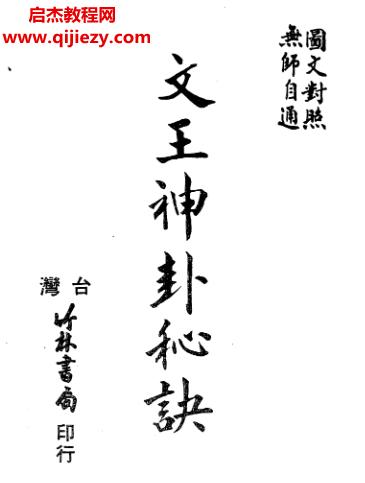 启杰教程网
www.qijiezy.com
圖文對照
無師自通
文王神卦秘訣
台灣
竹林書局
印行